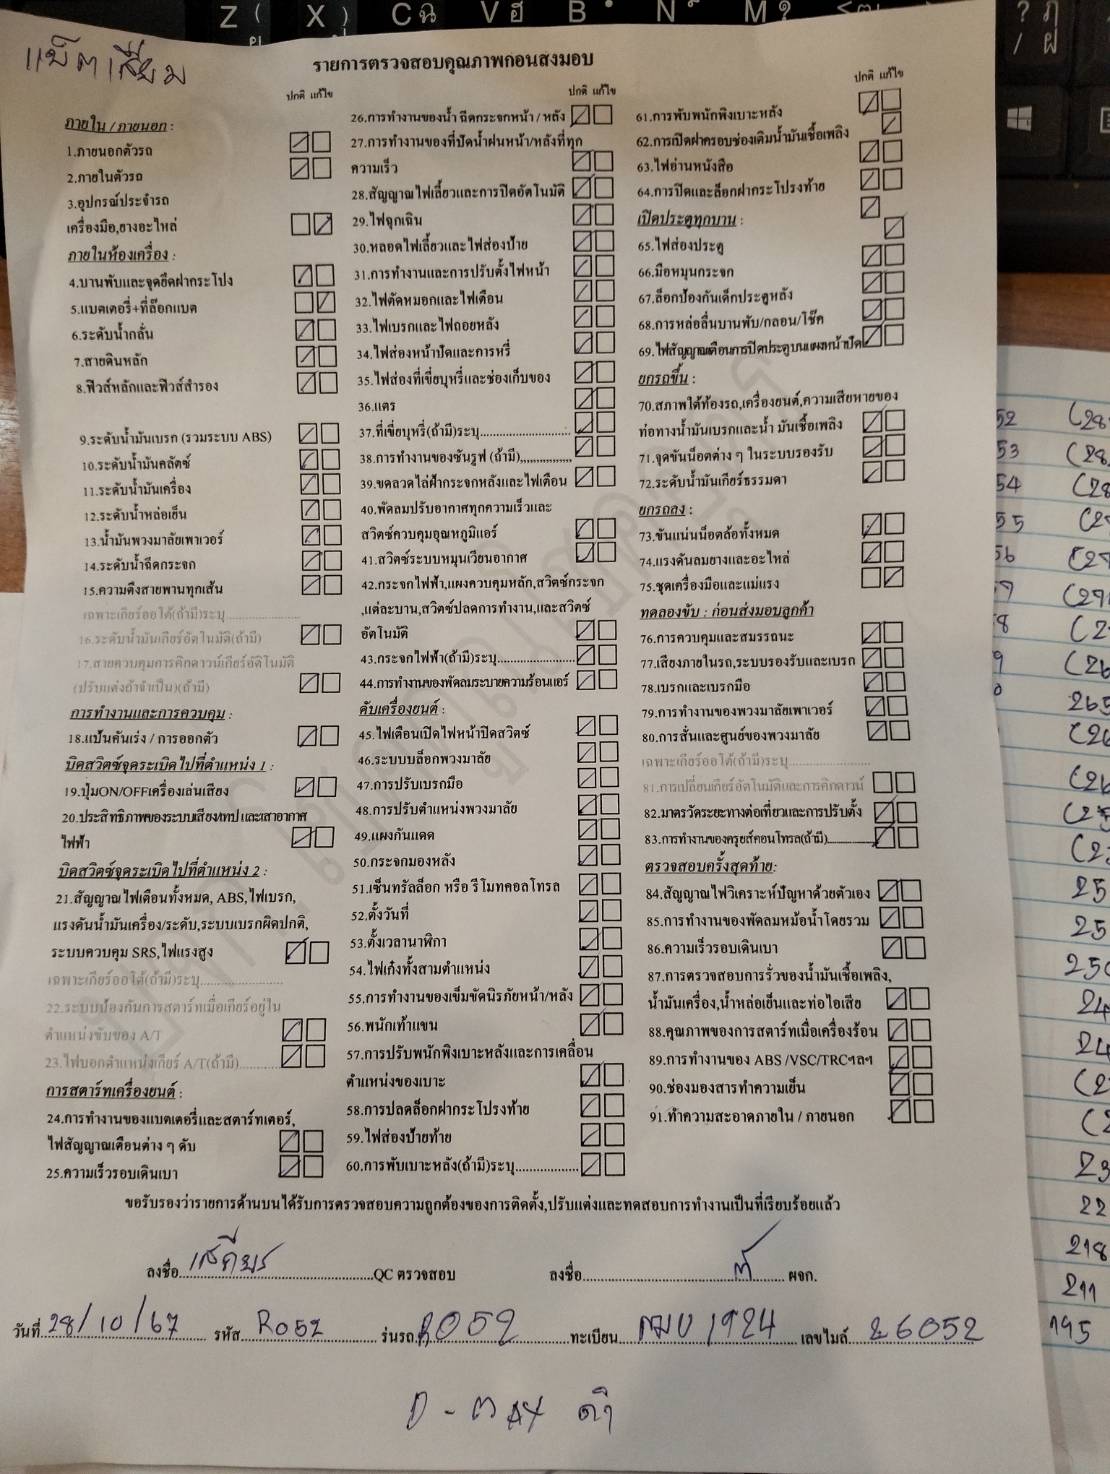 แบ็ตเสื่อม
รายการตรวจสอบคุณภาพก่อนส่งมอบ
ปกติ แก้ไข
ภายใน / ภายนอก :
1.ภายนอกตัวรถ
2.ภายในตัวรถ
3.อุปกรณ์ประจำรถ
เครื่องมือ,ยางอะไหล่
ภายในห้องเครื่อง :
4.บานพับและจุดยึดฝากระโปง
5.แบตเตอรี่+ที่ล๊อกแบต
6.ระดับน้ำกลั่น
7.สายดินหลัก
8.ฟิวส์หลักและฟิวส์สำรอง
9.ระดับน้ำมันเบรก (รวมระบบ ABS)
10.ระดับน้ำมันคลัตซ์
11.ระดับน้ำมันเครื่อง
12.ระดับน้ำหล่อเย็น
13.น้ำมันพวงมาลัยเพาเวอร์
14.ระดับน้ำฉีดกระจก
15.ความตึงสายพานทุกเส้น
เฉพาะเกียร์ออโต้(ถ้ามี)ระบุ....................
16.ระดับน้ำมันเกียร์อัตโนมัติ(ถ้ามี)
17.สายควบคุมการคิกดาวน์เกียร์อัติโนมัติ
(ปรับแต่งถ้าจำเป็น)(ถ้ามี)
การทำงานและการควบคุม :
18.แป้นคันเร่ง / การออกตัว
บิดสวิตซ์จุดระเบิดไปที่ตำแหน่ง 1 :
19.ปุ่มON/OFFเครื่องเล่นเสียง
20.ประสิทธิภาพของระบบเสียง/เทป และเสาอากาศ
ไฟฟ้า
บิดสวิตซ์จุดระเบิดไปที่ตำแหน่ง 2 :
21.สัญญาณไฟเตือนทั้งหมด, ABS,ไฟเบรก,
แรงดันน้ำมันเครื่อง/ระดับ,ระบบเบรกผิดปกติ,
ระบบควบคุม SRS,ไฟแรงสูง
เฉพาะเกียร์ออโต้(ถ้ามี)ระบุ....................
22.ระบบป้องกันการสตาร์ทเมื่อเกียร์อยู่ใน
ตำแหน่งขับของ A/T
23.ไฟบอกตำแหน่งเกียร์ A/T(ถ้ามี)..........
การสตาร์ทเครื่องยนต์ :
24.การทำงานของแบตเตอรี่และสตาร์ทเตอร์,
ไฟสัญญาณเตือนต่าง ๆ ดับ
25.ความเร็วรอบเดินเบา
ปกติ แก้ไข
26.การทำงานของน้ำ ฉีดกระจกหน้า / หลัง
27.การทำงานของที่ปัดน้ำฝนหน้า/หลังที่ทุก
ความเร็ว
28.สัญญาณไฟเลี้ยวและการปิดอัตโนมัติ
29.ไฟฉุกเฉิน
30.หลอดไฟเลี้ยวและไฟส่องป้าย
31.การทำงานและการปรับตั้งไฟหน้า
32.ไฟตัดหมอกและไฟเตือน
33.ไฟเบรกและไฟถอยหลัง
34.ไฟส่องหน้าปัดและการหรี่
35.ไฟส่องที่เขี่ยบุหรี่และช่องเก็บของ
36.แตร
37.ที่เขี่ยบุหรี่(ถ้ามี)ระบุ....................
38.การทำงานของซันรูฟ (ถ้ามี)...............
39.ขดลวดไล่ฝ้ากระจกหลังและไฟเตือน
40.พัดลมปรับอากาศทุกความเร็วและ
สวิตซ์ควบคุมอุณหภูมิแอร์
41.สวิตซ์ระบบหมุนเวียนอากาศ
42.กระจกไฟฟ้า,แผงควบคุมหลัก,สวิตซ์กระจก
,แต่ละบาน,สวิตซ์ปลดการทำงาน,และสวิตซ์
อัตโนมัติ
43.กระจกไฟฟ้า(ถ้ามี)ระบุ....................
44.การทำงานของพัดลมระบายความร้อนแอร์
ดับเครื่องยนต์ :
45.ไฟเตือนเปิดไฟหน้าปิดสวิตซ์
46.ระบบบล็อกพวงมาลัย
47.การปรับเบรกมือ
48.การปรับตำแหน่งพวงมาลัย
49.แผงกันแดด
50.กระจกมองหลัง
51.เซ็นทรัลล็อก หรือ รีโมทคอลโทรล
52.ตั้งวันที่
53.ตั้งเวลานาฬิกา
54.ไฟเก๋งทั้งสามตำแหน่ง
55.การทำงานของเข็มขัดนิรภัยหน้า/หลัง
56.พนักเท้าแขน
57.การปรับพนักพิงเบาะหลังและการเคลื่อน
ตำแหน่งของเบาะ
58.การปลดล็อกฝากระโปรงท้าย
59.ไฟส่องป้ายท้าย
60.การพับเบาะหลัง(ถ้ามี)ระบุ................
ปกติ แก้ไข
61.การพับพนักพิงเบาะหลัง
62.การเปิดฝาครอบช่องเติมน้ำมันเชื้อเพลิง
63.ไฟอ่านหนังสือ
64.การปิดและล็อกฝากระโปรงท้าย
เปิดประตูทุกบาน :
65.ไฟส่องประตู
66.มือหมุนกระจก
67.ล็อกป้องกันเด็กประตูหลัง
68.การหล่อลื่นบานพับ/กลอน/โช๊ค
69.ไฟสัญญาณเตือนการปิดประตูบนแผงหน้าปัด
ยกรถขึ้น :
70.สภาพใต้ท้องรถ,เครื่องยนต์,ความเสียหายของ
ท่อทางน้ำมันเบรกและน้ำ มันเชื้อเพลิง
71.จุดขันน็อตต่าง ๆ ในระบบรองรับ
72.ระดับน้ำมันเกียร์ธรรมดา
ยกรถลง :
73.ขันแน่นน็อตล้อทั้งหมด
74.แรงดันลมยางและอะไหล่
75.ชุดเครื่องมือและแม่แรง
ทดลองขับ : ก่อนส่งมอบลูกค้า
76.การควบคุมและสมรรถนะ
77.เสียงภายในรถ,ระบบรองรับและเบรก
78.เบรกและเบรกมือ
79.การทำงานของพวงมาลัยเพาเวอร์
80.การสั่นและศูนย์ของพวงมาลัย
เฉพาะเกียร์ออโต้(ถ้ามี)ระบุ....................
81.การเปลี่ยนเกียร์อัตโนมัติและการคิกดาวน์
82.มาตรวัดระยะทางต่อเที่ยวและการปรับตั้ง
83.การทำงานของครุยส์คอนโทรล(ถ้ามี)............
ตรวจสอบครั้งสุดท้าย:
84.สัญญาณไฟวิเคราะห์ปัญหาด้วยตัวเอง
85.การทำงานของพัดลมหม้อน้ำโดยรวม
86.ความเร็วรอบเดินเบา
87.การตรวจสอบการรั่วของน้ำมันเชื้อเพลิง,
น้ำมันเครื่อง,น้ำหล่อเย็นและท่อไอเสีย
88.คุณภาพของการสตาร์ทเมื่อเครื่องร้อน
89.การทำงานของ ABS /VSC/TRCฯลฯ
90.ช่องมองสารทำความเย็น
91.ทำความสะอาดภายใน / ภายนอก
ขอรับรองว่ารายการด้านบนได้รับการตรวจสอบความถูกต้องของการติดตั้ง,ปรับแต่งและทดสอบการทำงานเป็นที่เรียบร้อยแล้ว
ลงชื่อ เสถียร QC ตรวจสอบ ลงชื่อ.................... ผจก.
วันที่ 28/10/67 รหัส R052 รุ่นรถ R052 ทะเบียน 1924 เลขไมล์ 26052
D-max ดำ